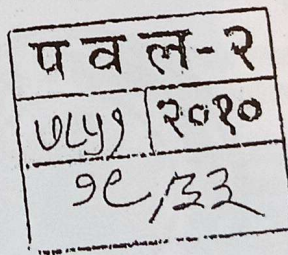 प व ल - २
७८५१ २०१०
१८/३३